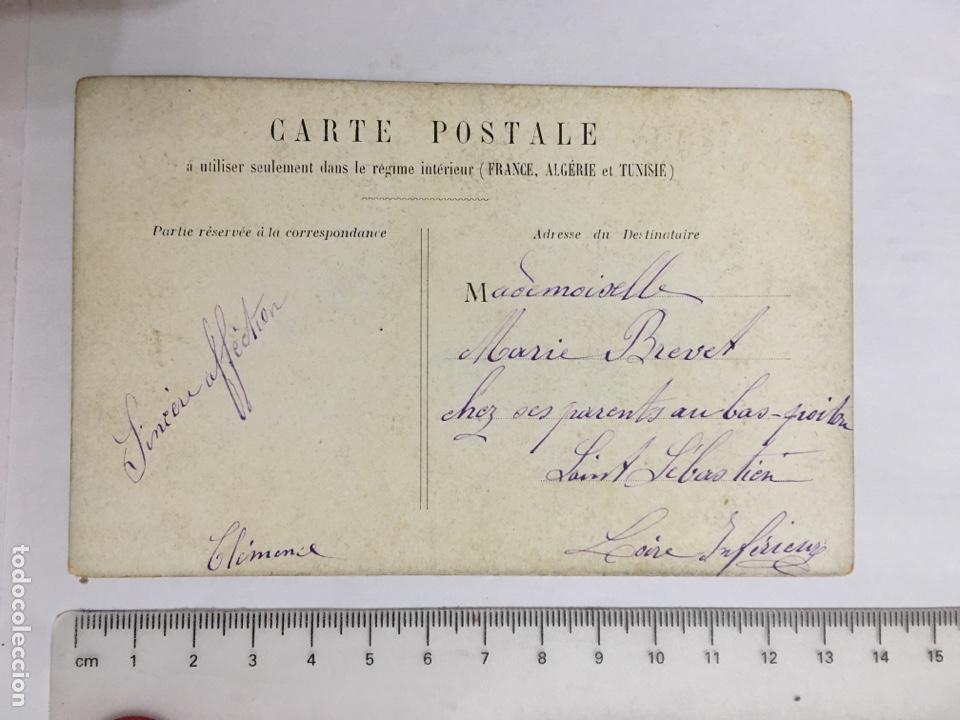 CARTE POSTALE
à utiliser seulement dans le régime intérieur (FRANCE, ALGÉRIE et TUNISIE)
Partie réservée à la correspondance
Sincère affection
Clémence
Adresse du Destinataire
Mademoiselle
Marie Brevet
chez ses parents au bas-poitou
Saint Sébastien
Loire Inférieure
cm 1 2 3 4 5 6 7 8 9 10 11 12 13 14 15
todocoleccion